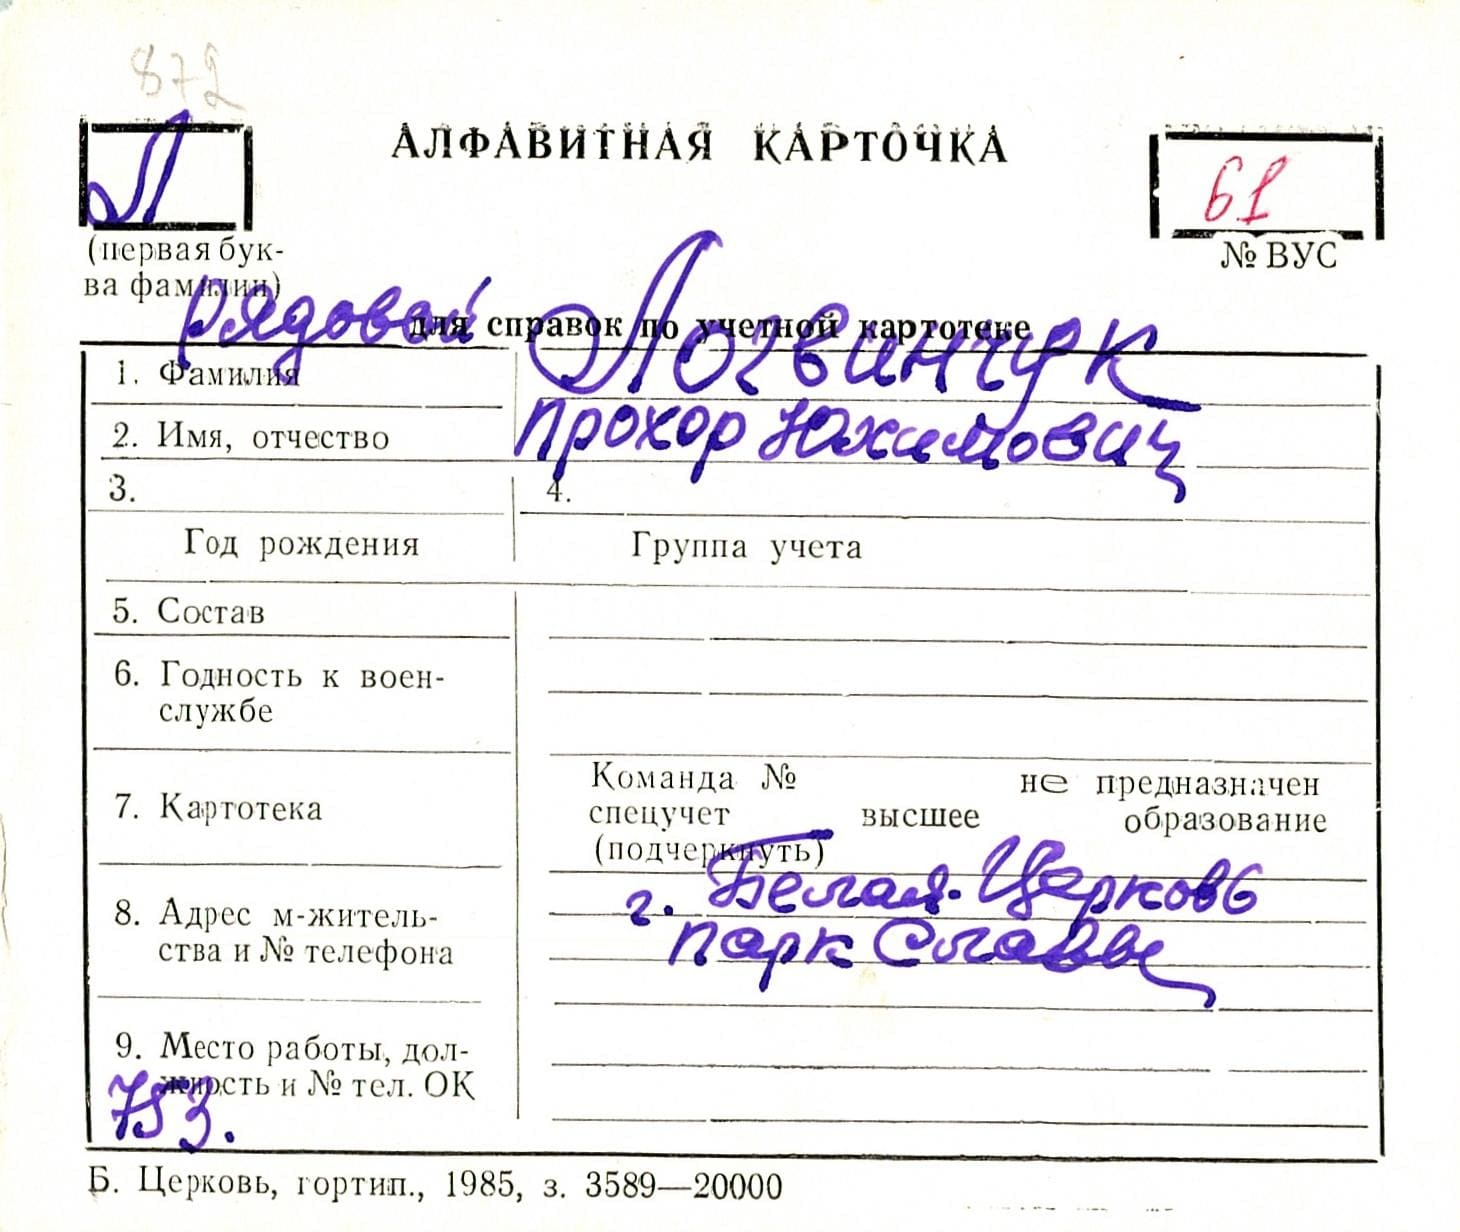 872
Л
АЛФАВИТНАЯ КАРТОЧКА
61
(первая бук-
ва фамилии)
№ ВУС
рядовой
для справок по учетной картотеке
1. Фамилия
Логвинчук
2. Имя, отчество
Прохор Юхимович
3.
4.
Год рождения
Группа учета
5. Состав
6. Годность к воен-
службе
7. Картотека
Команда № не предназначен
спецучет высшее образование
(подчеркнуть)
8. Адрес м-житель-
ства и № телефона
г. Белая-Церковь
парк Славы
9. Место работы, дол-
жность и № тел. ОК
753.
Б. Церковь, гортип., 1985, з. 3589—20000